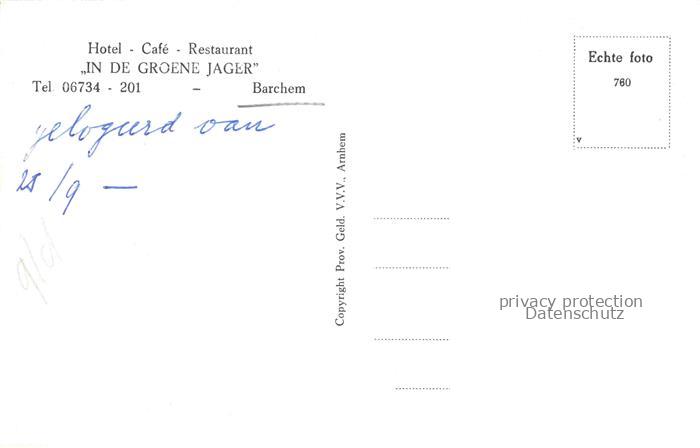 Hotel - Café - Restaurant
„IN DE GROENE JAGER”
Tel 06734 - 201 – Barchem
gelogeerd van
25/9 —
Copyright Prov. Geld. V.V.V., Arnhem
Echte foto
760
v
privacy protection
Datenschutz